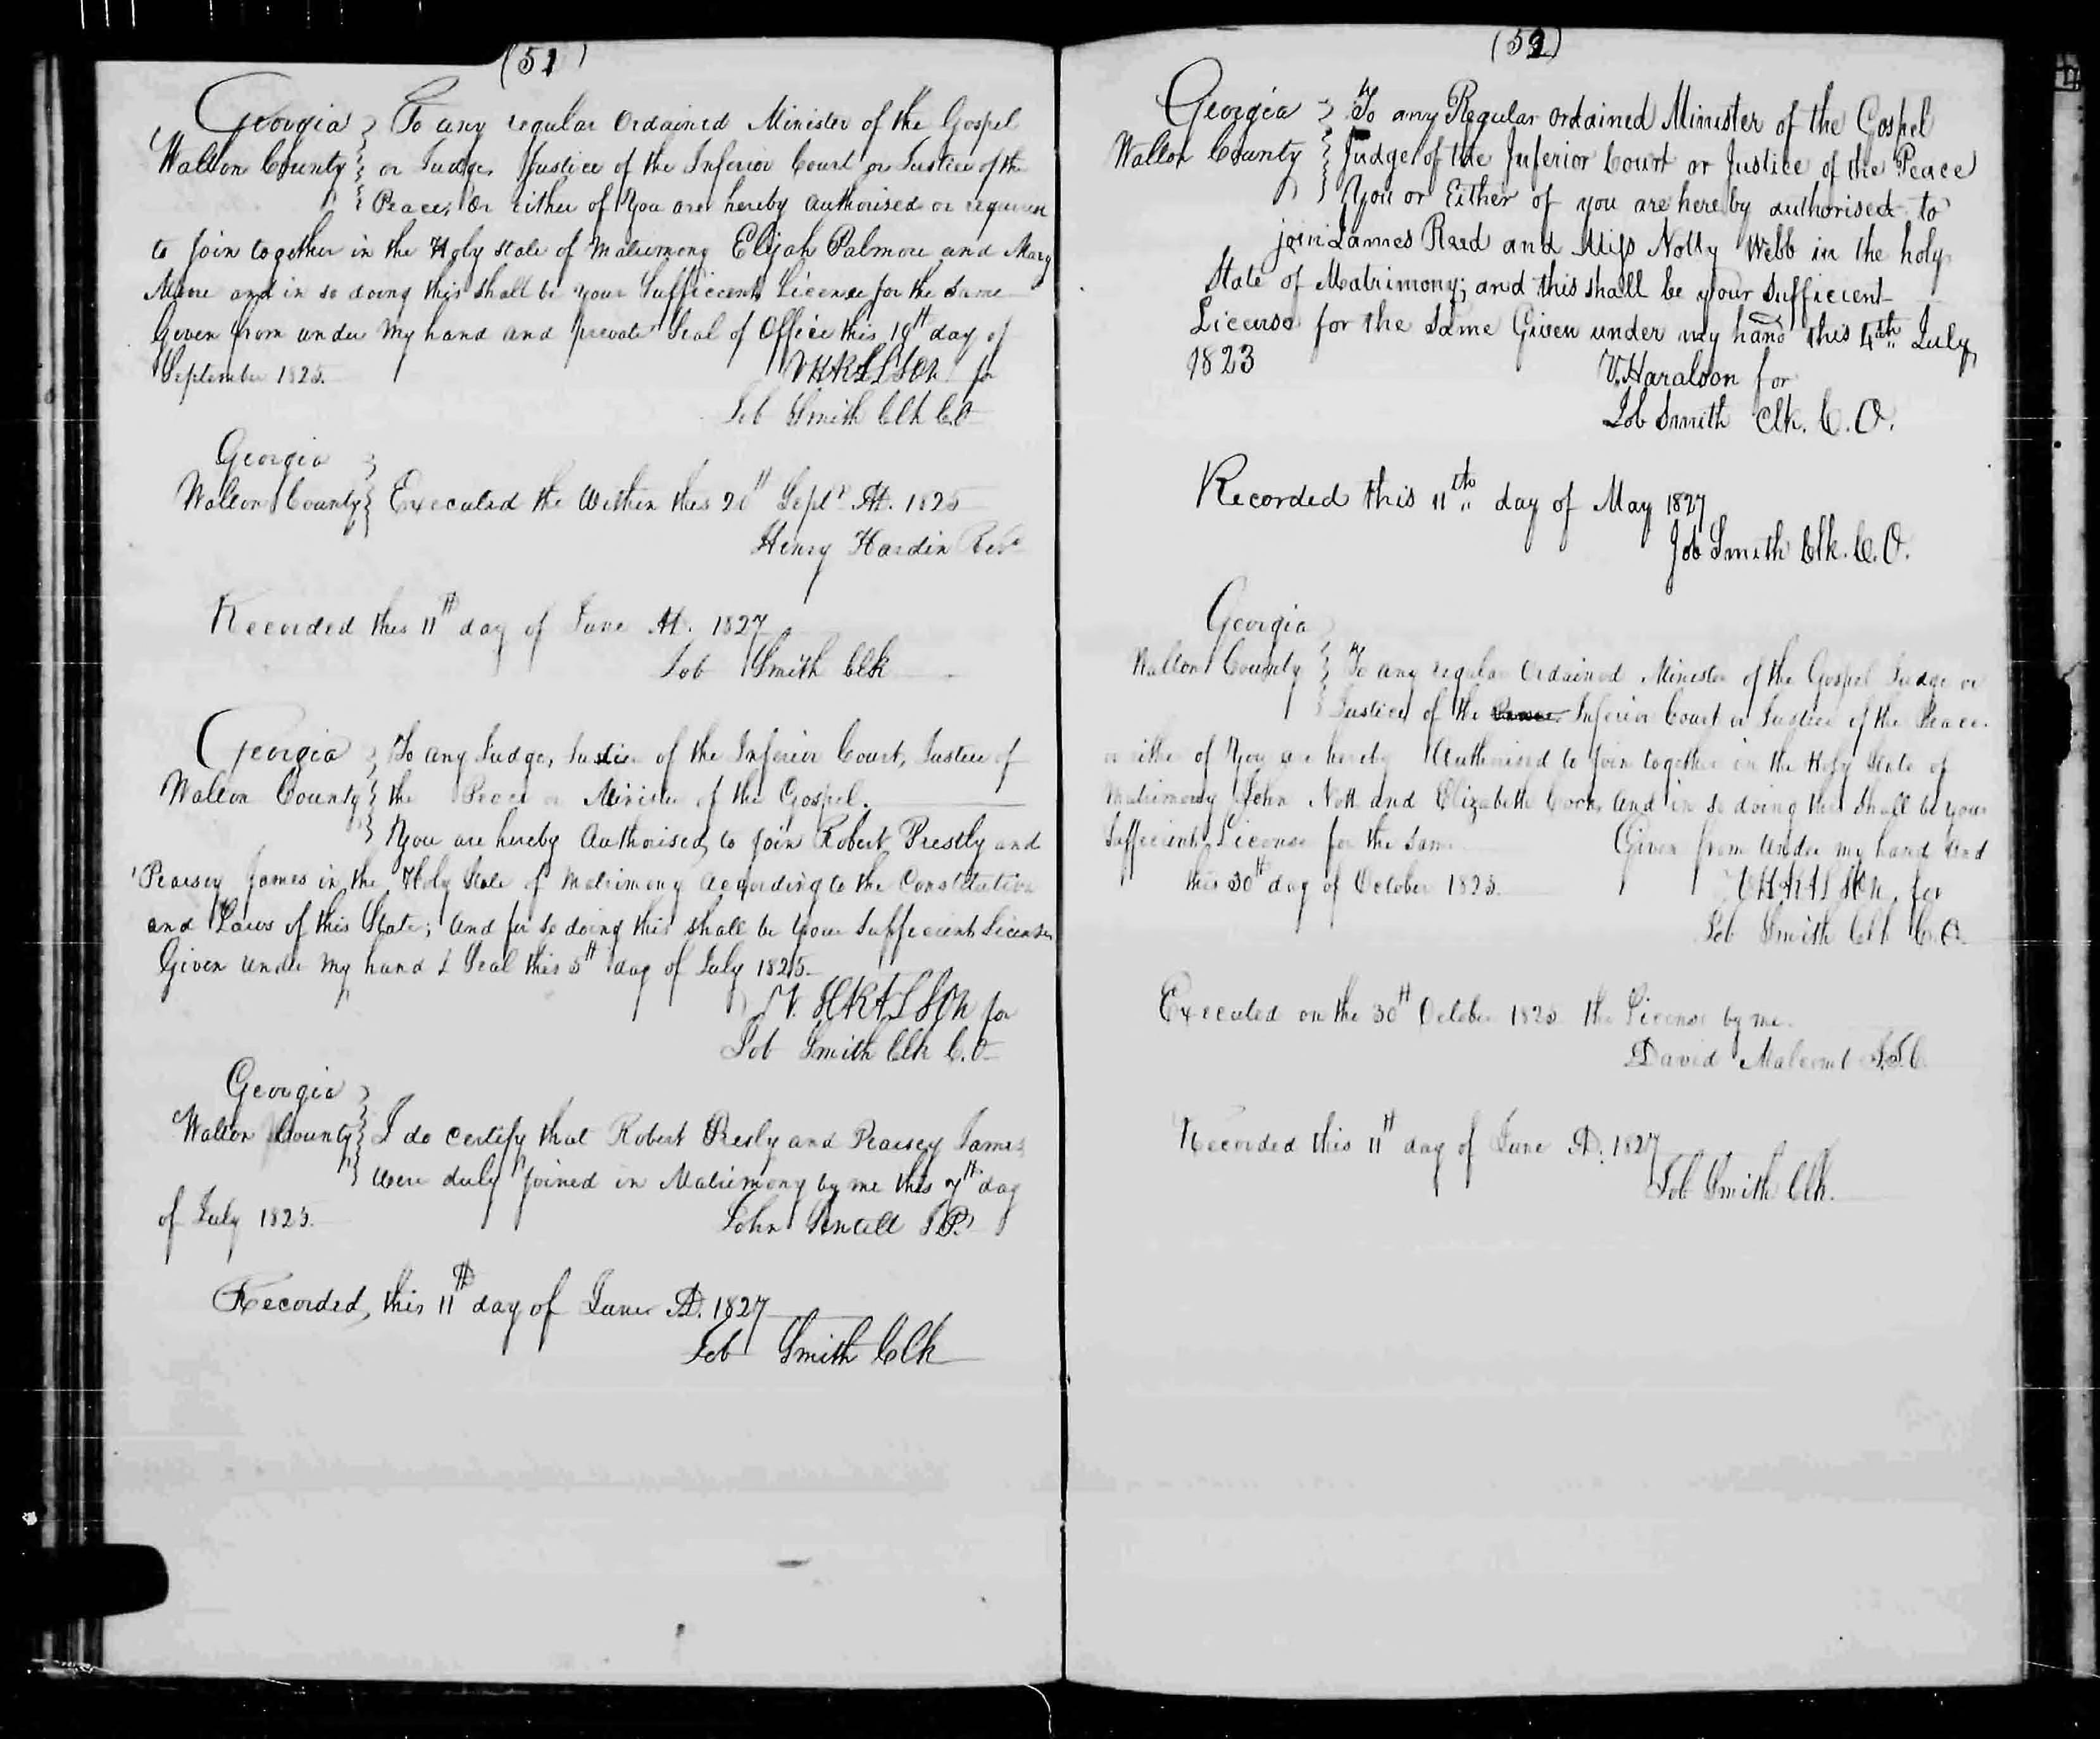 (51)
Georgia } To any regular Ordained Minister of the Gospel
Walton County } or Judge, Justice of the Inferior Court or Justice of the
Peace, Or either of You are hereby authorised or required
to join together in the Holy state of Matrimony Elijah Palmore and Mary
Moore and in so doing this shall be your Sufficient License for the Same
Given from under my hand and private Seal of Office this 19th day of
September 1825. for
Job Smith Clk C.O
Georgia
Walton County } Executed the Within this 20th Sept. AD. 1825
Henry Hardin Revd
Recorded this 11th day of June AD. 1827
Job Smith Clk
Georgia } To any Judge, Justice of the Inferior Court, Justice of
Walton County } the Peace or Minister of the Gospel.
You are hereby Authorised, to join Robert Prestly and
Pearsey James in the Holy State of Matrimony according to the Constitution
and Laws of this State; and for so doing this shall be your Sufficient License
Given under my hand & Seal this 5th day of July 1825.
V. HARALSON for
Job Smith Clk C.O
Georgia
Walton County } I do certify that Robert Presly and Pearsey James
were duly joined in Matrimony by me this 7th day
of July 1825. John J.P.
Recorded, this 11th day of June AD. 1827
Job Smith Clk
(52)
Georgia } To any Regular ordained Minister of the Gospel
Walton County } Judge of the Inferior Court or Justice of the Peace
You or Either of you are hereby authorised to
join James Reed and Miss Notty Webb in the holy
State of Matrimony; and this shall be your sufficient
License for the same Given under my hand this 4th July
1823 V. Haralson for
Job Smith Clk. C. O.
Recorded this 11th day of May 1827
Job Smith Clk. C. O.
Georgia
Walton County } To any regular Ordained Minister of the Gospel Judge or
Justice of the Inferior Court or Justice of the Peace.
or either of You are hereby Authorised to join together in the Holy State of
Matrimony John Nott and Elizabeth Cook, and in so doing this shall be your
Sufficient License for the same Given from under my hand and
this 30th day of October 1825. V HARALSON, for
Job Smith Clk C.O.
Executed on the 30th October 1825 the License by me.
David Malcoml J.I.C.
Recorded this 11th day of June AD. 1827
Job Smith Clk.